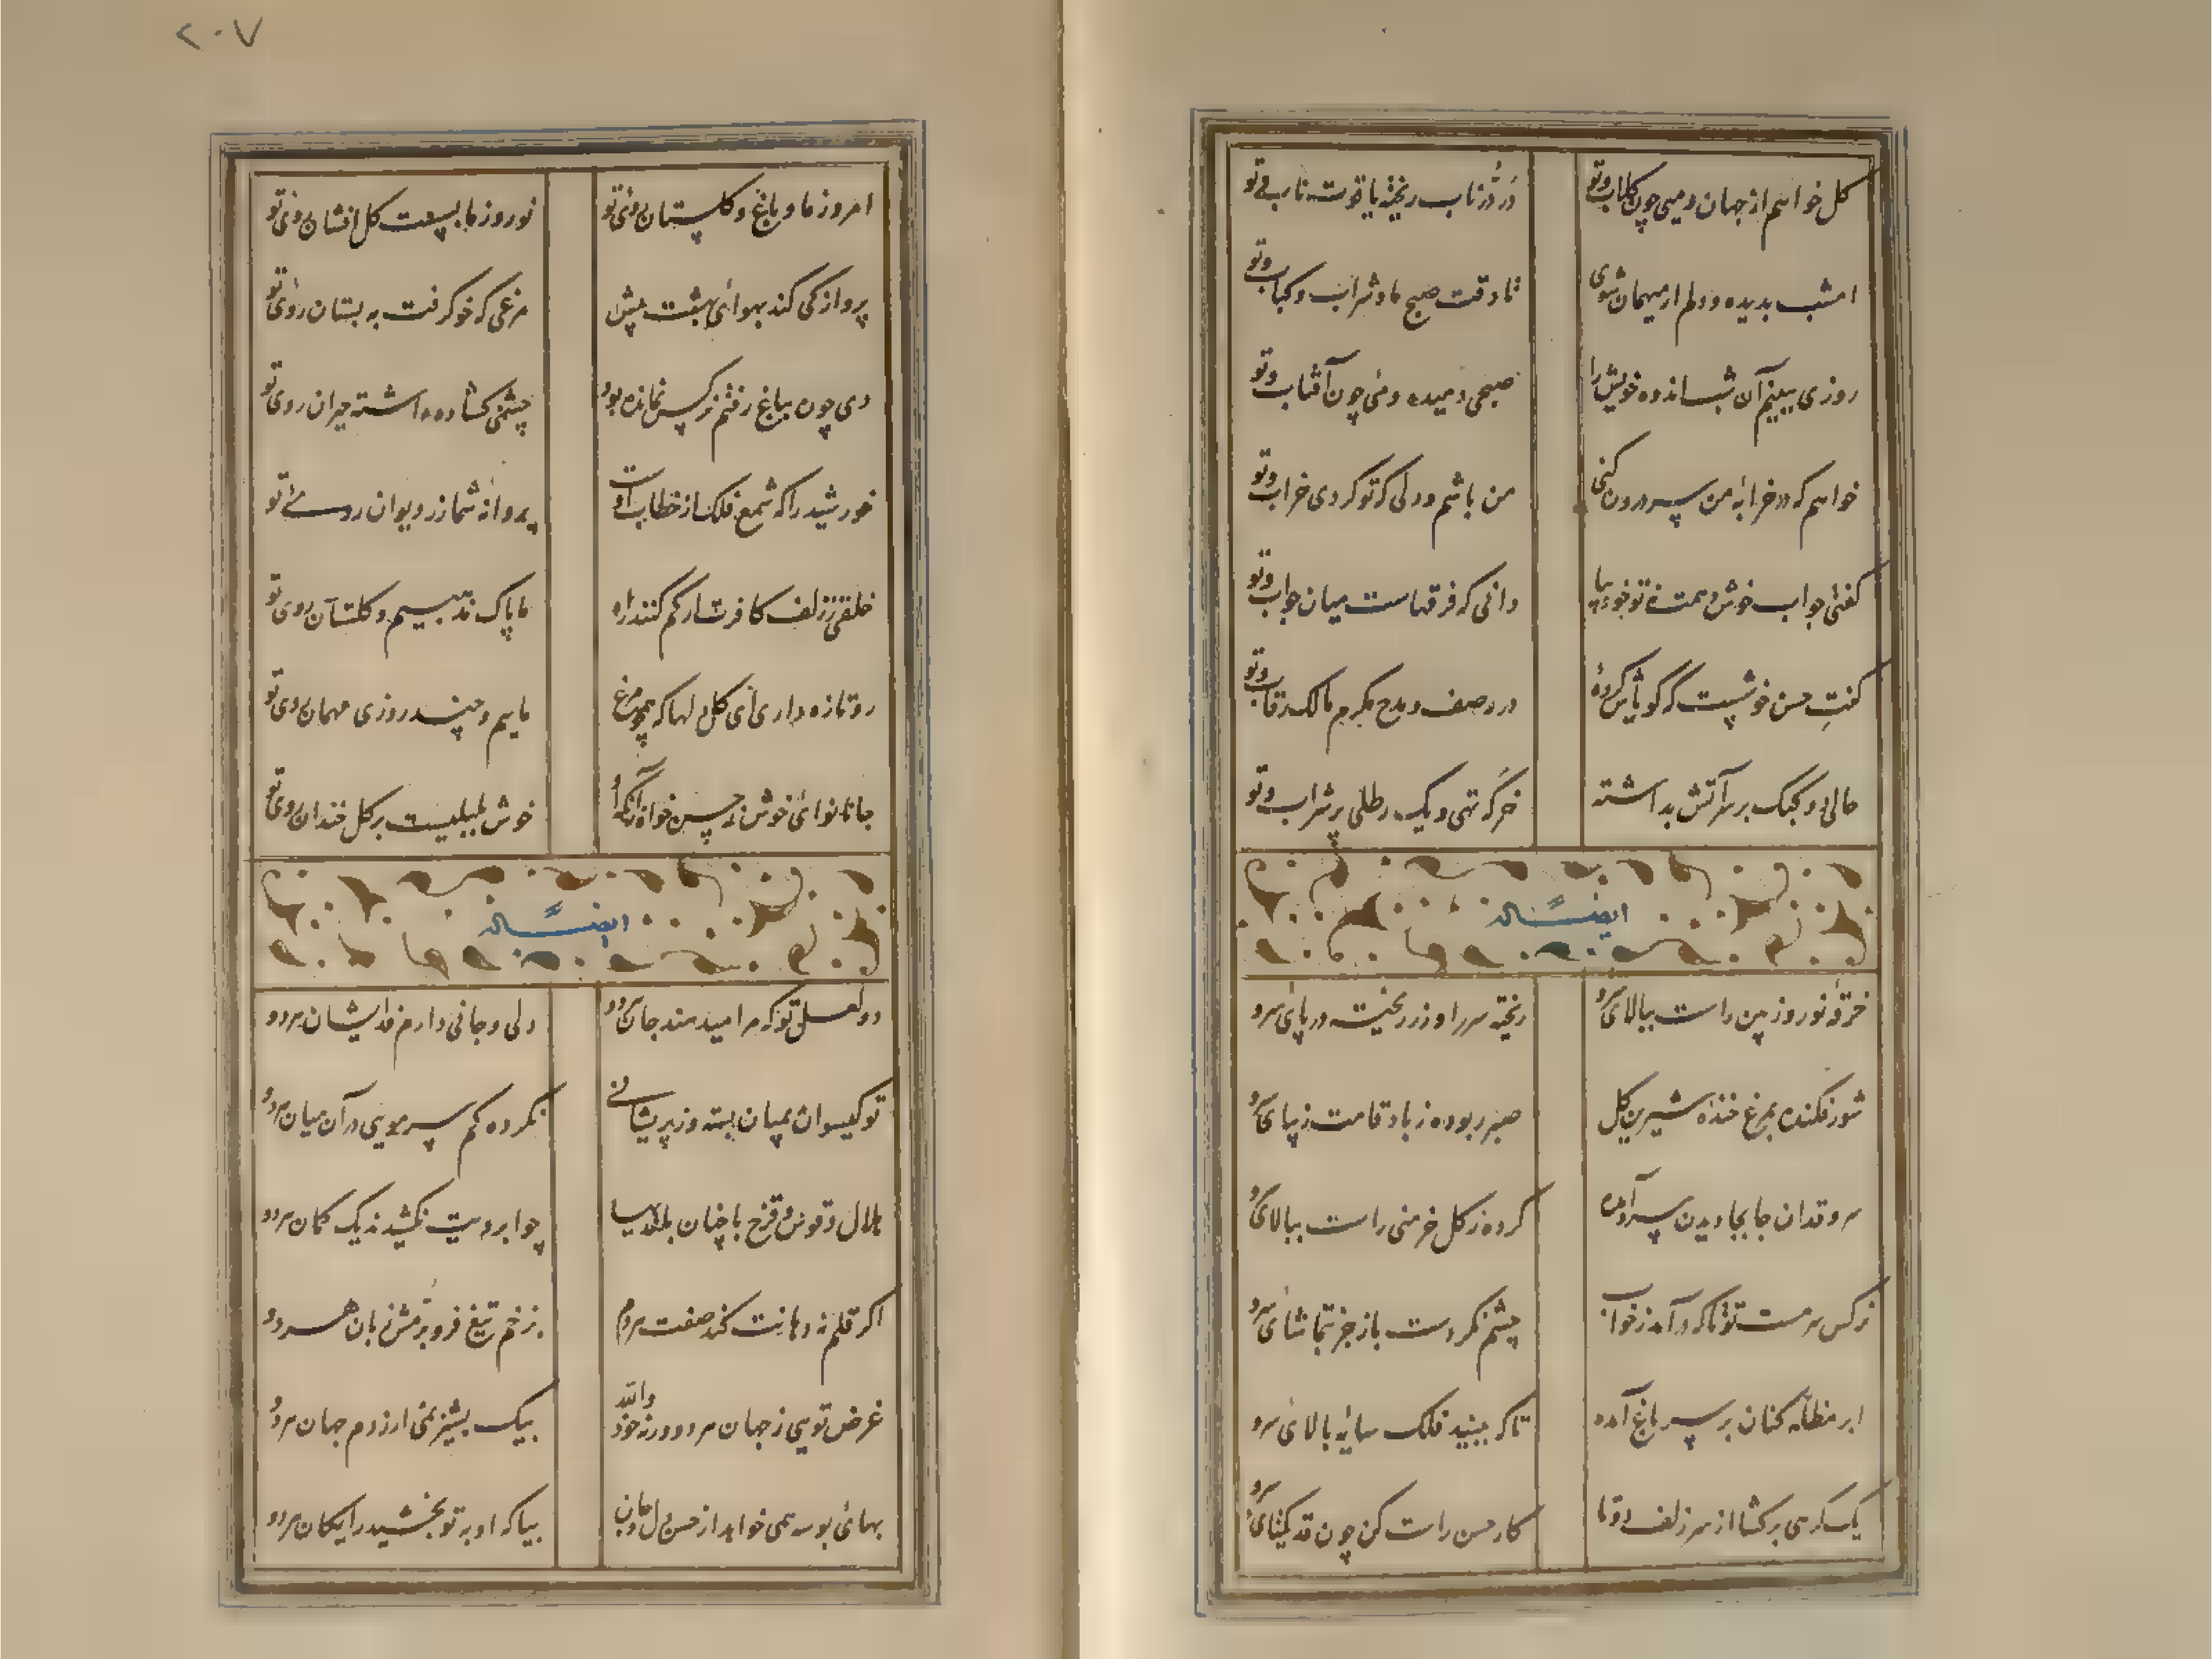 کل خواهم از جهان و میی چون کلاب و تو
در در ناب ریخته یا قوت ناب و تو
امشب بدیده و دلم ار میهمان شوی
تا وقت صبح ما و شراب و کباب و تو
روزی ببینم آن شب اندوه خویش را
صبحی دمیده و مئی چون آفتاب و تو
خواهم که در خرابهٔ من سر درون کنی
من باشم و دلی که تو کردی خراب و تو
کفتی جواب خوش دهمت تو خود بیا
دانی که فرقهاست میان جواب و تو
کفت حسن خوشست کر کو یاس کرده
در وصف و مدح مکرم مالک رقاب و تو
حالی دو کبک بر سر آتش بداشته
خرکه تهی و یک رطلی پر شراب و تو
ایضاً له
خرقهٔ نوروز بین راست ببالای سرو
ریخته سر را و زر ریخته در پای سرو
شور فکنده بمرغ خندهٔ شیرین کل
صبر ربوده ز باد قامت زیبای سرو
سرو قدان جا بجا دیدن سرو آمده
کرده ز کل خرمنی راست ببالای سرو
نرکس سرمست تو تا که در آمد ز خواب
چشم نکردست باز جز بتماشای سرو
ابر مظله کنان بر سر باغ آمده
تا که نبیند فلک سایهٔ بالای سرو
یک کرهی بر کشا از سر زلف دوتا
کار حسن راست کن چون قد یکتای سرو
۲۰۷
امروز ما و باغ و کلستان روی تو
نوروز ما بسست کل افشان روی تو
پرواز کی کند بهوای بهشت پیش
مرغی که خو کرفت به بستان روی تو
دی چون بباغ رفتم نرکس نمانده بود
چشمی کشاده داشته حیران روی تو
خورشید را که شمع فلک از خطاب اوست
پروانه شماز ر دیوان روی تو
خلقی ز زلف کافرت ار کم کنند راه
ما پاک مذهبیم و کلستان روی تو
رو تازه داری ای کل دلها که همچو مرغ
ماییم و چند روزی مهمان روی تو
جانا نوای خوش ز حسن خواه آنکه او
خوش بلبلیست بر کل خندان روی تو
ایضاً له
دو لعل تو که مرا میدهند جان هر دو
دلی و جانی دارم فدایشان هر دو
تو کیسوان بمیان بسته وز پریشانی
نکرده کم سر مویی در آن میان هر دو
هلال و قوس و قزح با چنان بلندیها
چو ابرویت نکشیدند یک کمان هر دو
اکر قلم نه دهانت کند صفت هر دم
بزخم تیغ فرو برمش زبان هر دو
غرض تویی ز جهان هر دو ورنه خود والله
بیک پشیز نمی ارزدم جهان هر دو
بهای بوسه همی خواهد از حسن دل و جان
بیا که او به تو بخشید رایکان هر دو